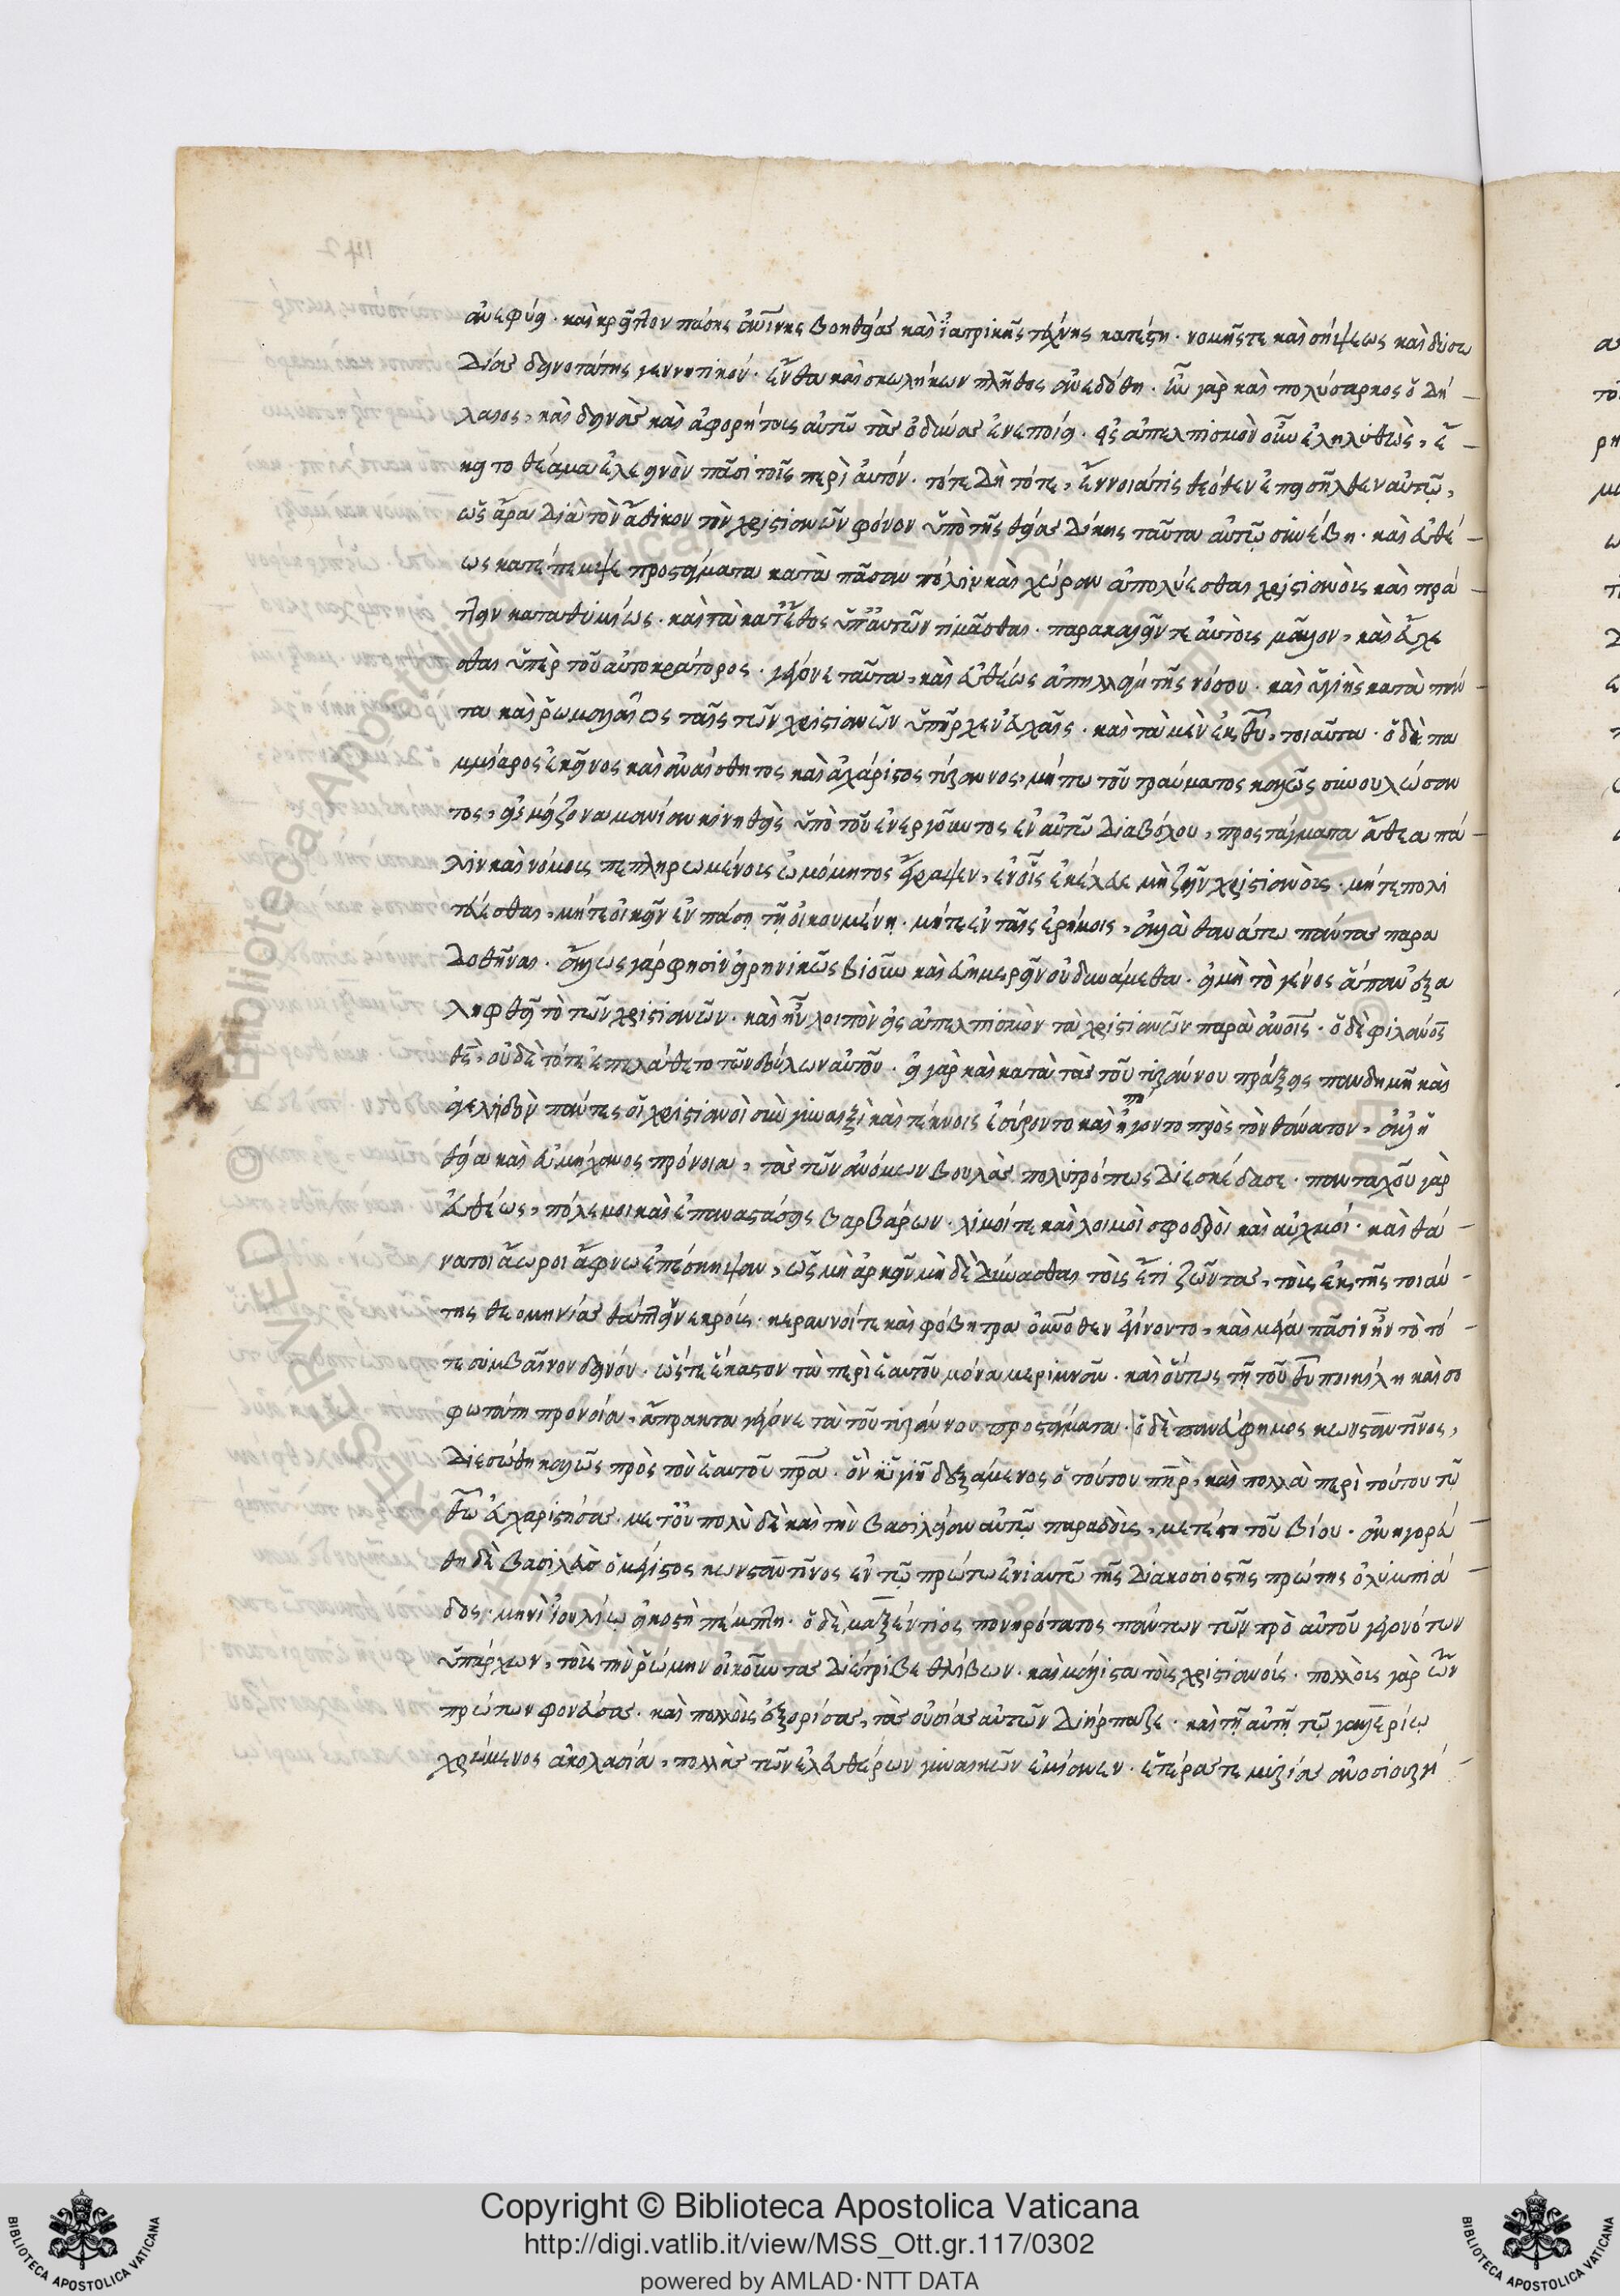 ἀνεφύη· καὶ κρεῖττον πάσης ἀνίνης βοηθείας καὶ ἰατρικῆς τέχνης κατέστη· νομῆς τε καὶ σήψεως καὶ δυσω
δίας δεινοτάτης γεννητικόν· ἔνθα καὶ σκωλήκων πλῆθος ἀνεδόθη· ἦν γὰρ καὶ πολύσαρκος ὁ δή
λαιος, καὶ δεινὰς καὶ ἀφορήτους αὐτῶ τὰς ὀδύνας ἐνεποίει· εἰς ἀπελπισμὸν οὖν ἐληλυθὼς, ἔ
κειτο θέαμα ἐλεεινὸν πᾶσι τοῖς περὶ αὐτόν· τότε δὴ τότε, ἔννοιά τις θεόθεν ἐπεισῆλθεν αὐτῷ,
ὡς ἄρα διὰ τὸν ἄδικον τῶν χριστιανῶν φόνον ὑπὸ τῆς θείας δίκης ταῦτα αὐτῷ συνέβη· καὶ εὐθέ
ως κατέπεμψε προστάγματα κατὰ πᾶσαν πόλιν καὶ χώραν ἀπολύεσθαι χριστιανοὺς καὶ πρά
ττειν καταθυμίως· καὶ τὰ κατ' ἔθος ὑπ' αὐτῶν τιμᾶσθαι· παρακαλεῖν τε αὐτοὺς μᾶλλον, καὶ εὔχε
σθαι ὑπὲρ τοῦ αὐτοκράτορος· γέγονε ταῦτα, καὶ εὐθέως ἀπηλλάγη τῆς νόσου· καὶ ὑγιὴς κατὰ πάν
τα καὶ ῥωμαλαῖος ταῖς τῶν χριστιανῶν ὑπῆρχεν εὐχαῖς· καὶ τὰ μὲν ἐκ θυ, τοιαῦτα· ὁ δὲ πα
μμίαρος ἐκεῖνος καὶ ἀναίσθητος καὶ ἀχάριστος τύραννος, μήπω τοῦ τραύματος καλῶς συνουλώσαν
τος, εἰς μείζονα μανίαν κινηθεὶς ὑπὸ τοῦ ἐνεργοῦντος ἐν αὐτῶ διαβόλου, προστάγματα ἄθεα πά
λιν καὶ νόμους πεπληρωμένους ὠμότητος ἔγραψεν, ἐν οἷς ἐκέλευε μὴ ζῆν χριστιανοὺς· μήτε πολι
τεύεσθαι, μήτε οἰκεῖν ἐν πάσῃ τῇ οἰκουμένῃ· μήτε ἐν ταῖς ἐρήμοις, ἀλλὰ θανάτω πάντας παρα
δοθῆναι· ἄλλως γάρ φησιν εἰρηνικῶς βιοῦν καὶ εὐημερεῖν οὐ δυνάμεθα· εἰ μὴ τὸ γένος ἅπαν ἐξα
λειφθῇ τὸ τῶν χριστιανῶν· καὶ ἦν λοιπὸν εἰς ἀπελπισμὸν τὰ χριστιανῶν παρὰ ἀνοις· ὁ δὲ φιλανος
θς, οὐδὲ τότε ἐπελάθετο τῶν δούλων αὐτοῦ· εἰ γὰρ καὶ κατὰ τὰς τοῦ τυράννου πράξεις πανδημεὶ καὶ
ἀγεληδὸν πάντες οἱ χριστιανοὶ σὺν γυναιξὶ καὶ τέκνοις ἐσύροντο καὶ ἤγοντο πρὸς τὸν θάνατον, ἀλλ' ἡ
θεία καὶ εὐμήχανος πρόνοια, τὰς τῶν ἀνόμων βουλὰς πολυτρόπως διεσκέδασε· πανταχοῦ γὰρ
εὐθέως, πόλεμοι καὶ ἐπαναστάσεις βαρβάρων· λιμοί τε καὶ λοιμοὶ σφοδροὶ καὶ αὐχμοί· καὶ θά
νατοι ἄωροι ἄφνω ἐπέσκηψαν, ὡς μὴ ἀρκεῖν μὴ δὲ δύνασθαι τοὺς ἔτι ζῶντας, τοὺς ἐκ τῆς τοιαύ
της θεομηνίας θάπτειν νεκρούς· κεραυνοί τε καὶ φόβητρα οὐνόθεν ἐγίνοντο, καὶ μέγα πᾶσιν ἦν τὸ τό
τε συμβαῖνον δεινόν· ὥστε ἕκαστον τὰ περὶ ἑαυτοῦ μόνα μεριμνᾶν· καὶ οὕτως τῇ τοῦ θυ ποικίλη καὶ σο
φωτάτη προνοία, ἄπρακτα γέγονε τὰ τοῦ τυράννου προστάγματα· ὁ δὲ πανεύφημος κωνσταντῖνος,
διεσώθη καλῶς πρὸς τὸν ἑαυτοῦ πρα· ὃν ὑγιῆ δεξάμενος ὁ τούτου πηρ, καὶ πολλὰ περὶ τούτου τῶ
θω εὐχαριστήσας· μετ' οὐ πολὺ δὲ καὶ τὴν βασιλείαν αὐτῷ παραδοὺς, μετέστη τοῦ βίου· ἀνηγορεύ
θη δὲ βασιλεὺς ὁ μέγιστος κωνσταντῖνος ἐν τῷ πρώτω ἐνιαυτῶ τῆς διακοσιοστῆς πρώτης ὀλυμπιά
δος· μηνὶ ἰουλίῳ εἰκοστῆ πέμπτη· ὁ δὲ μαξέντιος πονηρότατος πάντων τῶν πρὸ αὐτοῦ γεγονότων
ὑπάρχων, τοὺς τὴν ῥώμην οἰκοῦντας διέτριβε θλίβων· καὶ μάλιστα τοὺς χριστιανούς· πολλοὺς γὰρ τῶν
πρώτων φονεύσας· καὶ πολλοὺς ἐξορίσας, τὰς οὐσίας αὐτῶν διήρπαξε· καὶ τῇ αὐτῇ τῷ γαλερίῳ
χρώμενος ἀκολασία, πολλὰς τῶν ἐλευθέρων γυναικῶν ἐμίανεν· ἑτέρας τε μυρίας ἀνοσιουργή
Copyright © Biblioteca Apostolica Vaticana
http://digi.vatlib.it/view/MSS_Ott.gr.117/0302
powered by AMLAD·NTT DATA